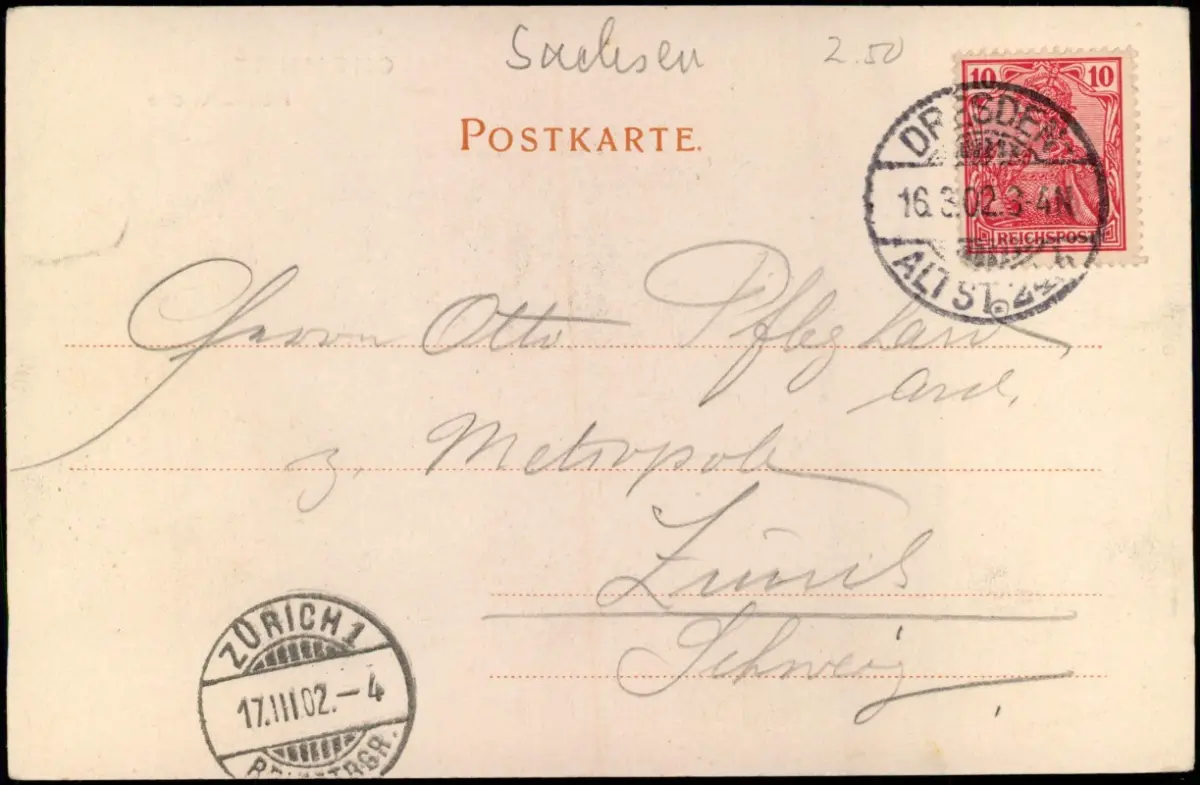 Sachsen 2.50
POSTKARTE.
10 10
REICHSPOST
DRESDEN
16.3.02.3-4N
ALTST. 24
Herrn Otto
z. Metropole
Zürich
Schweiz
ZÜRICH 1
17.III.02.-4